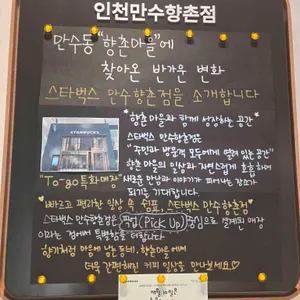 인천만수향촌점
만수동 "향촌마을"에
찾아온 반가운 변화
스타벅스 만수향촌점을 소개합니다
STARBUCKS
"To-go특화매장"
"향촌 마을과 함께 성장하는 공간"
스타벅스 만수향촌점은
"주민과 방문객 모두에게 열려 있는 공간"
향촌 마을의 일상과 자연스럽게 호흡하며
새로운 만남과 이야기가 피어나는 장소가
되기를 기대합니다
빠르고 편리한 일상 속 쉼표, 스타벅스 만수향촌점
스타벅스 만수향촌점은 픽업(Pick Up)중심으로 설계된 매장
이라는 점에서 특별함을 더합니다
향기처럼 마음에 남는 동네, 향촌마을에서
더욱 간편해진 커피 일상을 만나보세요